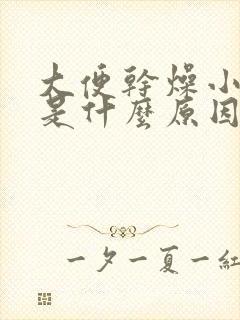 大便幹燥小
是什麼原因
一夕一夏一紅